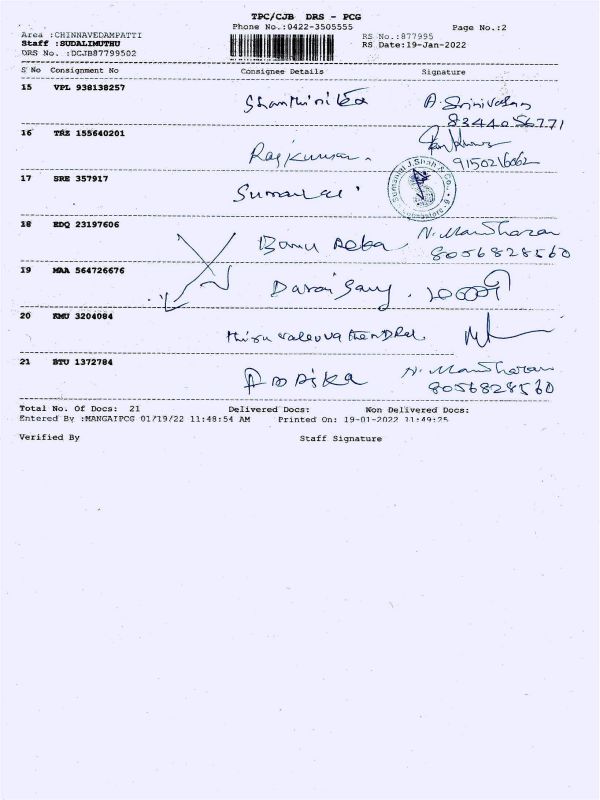 TPC/CJB DRS - PCG
Phone No.:0422-3505555 Page No.:2
Area :CHINNAVEDAMPATTI RS No.:877995
Staff :SUDALIMUTHU RS Date:19-Jan-2022
DRS No. :DCJB87799502
S No Consignment No Consignee Details Signature
15 VPL 938138257 A. Srinivasan
8344056771
16 TRZ 155640201 Raj Kumar.
9150216062
17 SRE 357917 Sumanlal Sumanlal J. Shah & Co. Coimbatore - 9
18 EDQ 23197606 Banu N. Manoharan
8056828560
19 MAA 564726676 Durai Samy.
20 KMU 3204084
21 BTU 1372784 Ambika N. Manoharan
8056828560
Total No. Of Docs: 21 Delivered Docs: Non Delivered Docs:
Entered By :MANGAIPCG 01/19/22 11:48:54 AM Printed On: 19-01-2022 11:49:25
Verified By Staff Signature